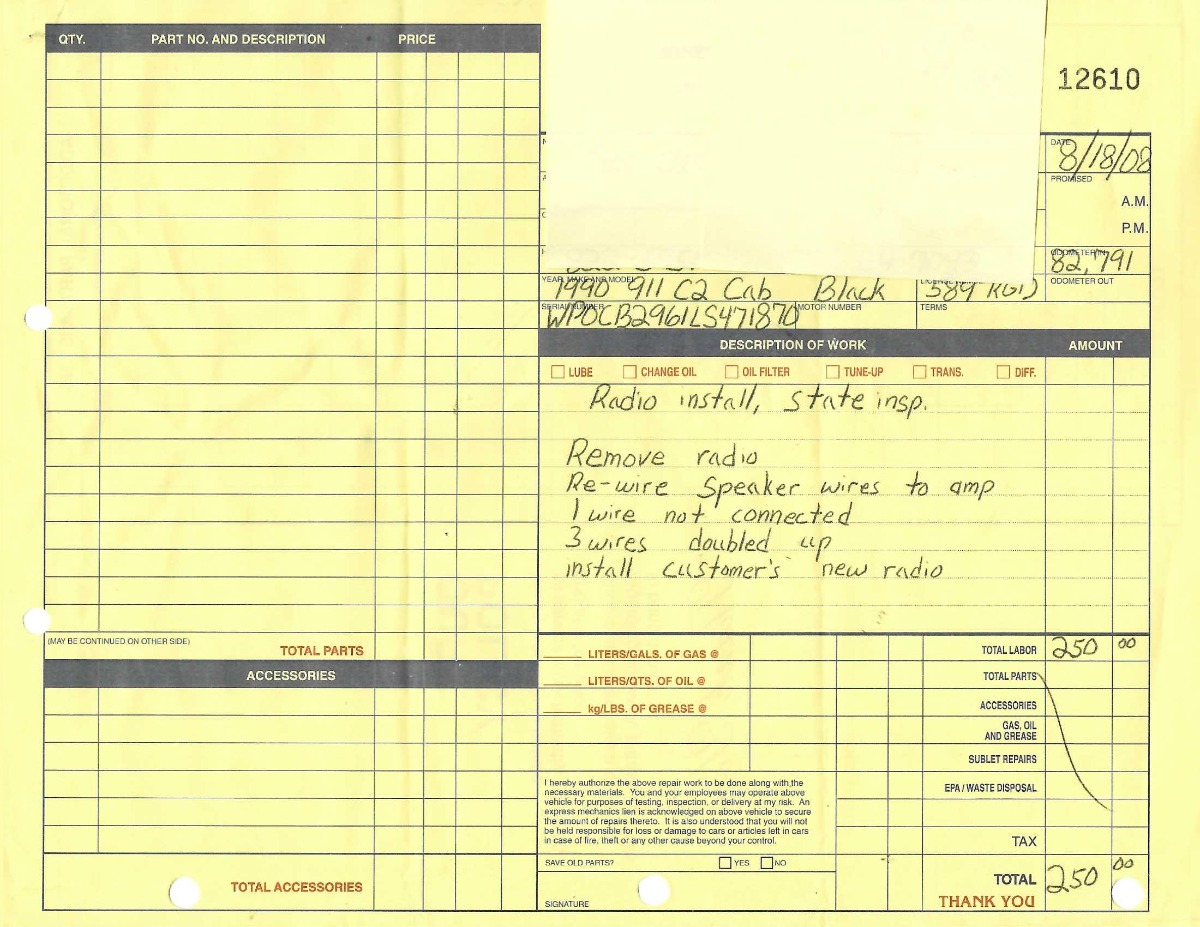 QTY. PART NO. AND DESCRIPTION PRICE
12610
DATE 8/18/08
PROMISED
A.M.
P.M.
ODOMETER IN 82,791
YEAR, MAKE AND MODEL 1990 911 C2 Cab Black 589
ODOMETER OUT
SERIAL NUMBER WP0CB2961LS471870 MOTOR NUMBER TERMS
DESCRIPTION OF WORK AMOUNT
LUBE CHANGE OIL OIL FILTER TUNE-UP TRANS. DIFF.
Radio install, state insp.
Remove radio
Re-wire Speaker wires to amp
1 wire not connected
3 wires doubled up
install customer's new radio
(MAY BE CONTINUED ON OTHER SIDE)
TOTAL PARTS
ACCESSORIES
TOTAL ACCESSORIES
LITERS/GALS. OF GAS @
LITERS/QTS. OF OIL @
kg/LBS. OF GREASE @
TOTAL LABOR 250 00
TOTAL PARTS
ACCESSORIES
GAS, OIL
AND GREASE
SUBLET REPAIRS
EPA / WASTE DISPOSAL
TAX
I hereby authorize the above repair work to be done along with the
necessary materials. You and your employees may operate above
vehicle for purposes of testing, inspection, or delivery at my risk. An
express mechanics lien is acknowledged on above vehicle to secure
the amount of repairs thereto. It is also understood that you will not
be held responsible for loss or damage to cars or articles left in cars
in case of fire, theft or any other cause beyond your control.
SAVE OLD PARTS? YES NO
SIGNATURE
TOTAL 250 00
THANK YOU